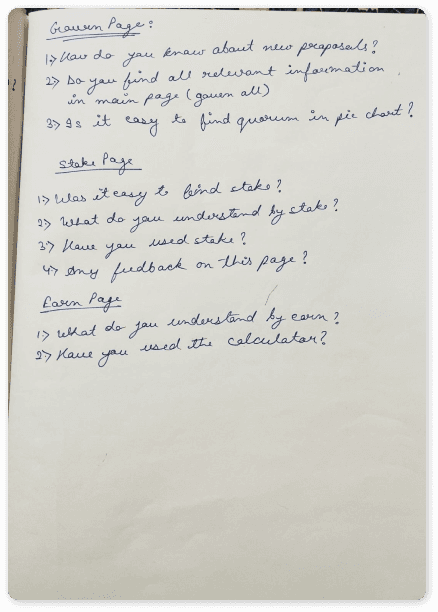 Govern Page:
1> How do you know about new proposals?
2> Do you find all relevant information
in main page (govern all)
3> Is it easy to find quorum in pie chart?
Stake Page
1> Was it easy to find stake?
2> What do you understand by stake?
3> Have you used stake?
4> Any feedback on this page?
Earn Page
1> What do you understand by earn?
2> Have you used the calculator?
?